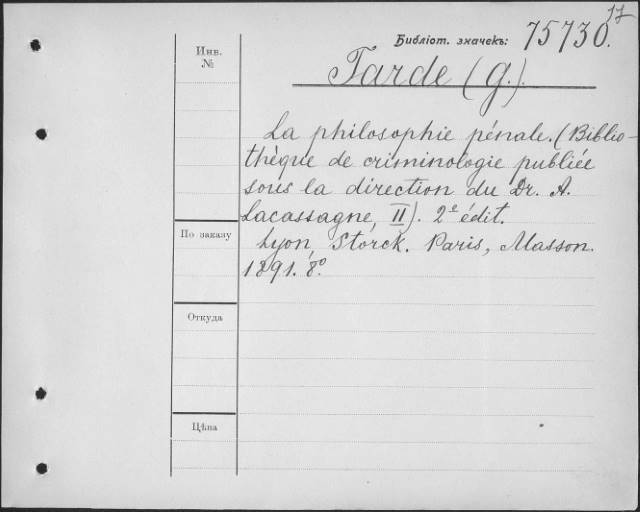 17
Библіот. значекъ: 75730.
Инв.
№
Tarde (G.).
La philosophie pénale. (Biblio-
thèque de criminologie publiée
sous la direction du Dr. A.
Lacassagne, II). 2e édit.
Lyon, Storck. Paris, Masson.
1891. 8º
По заказу
Откуда
Цѣна